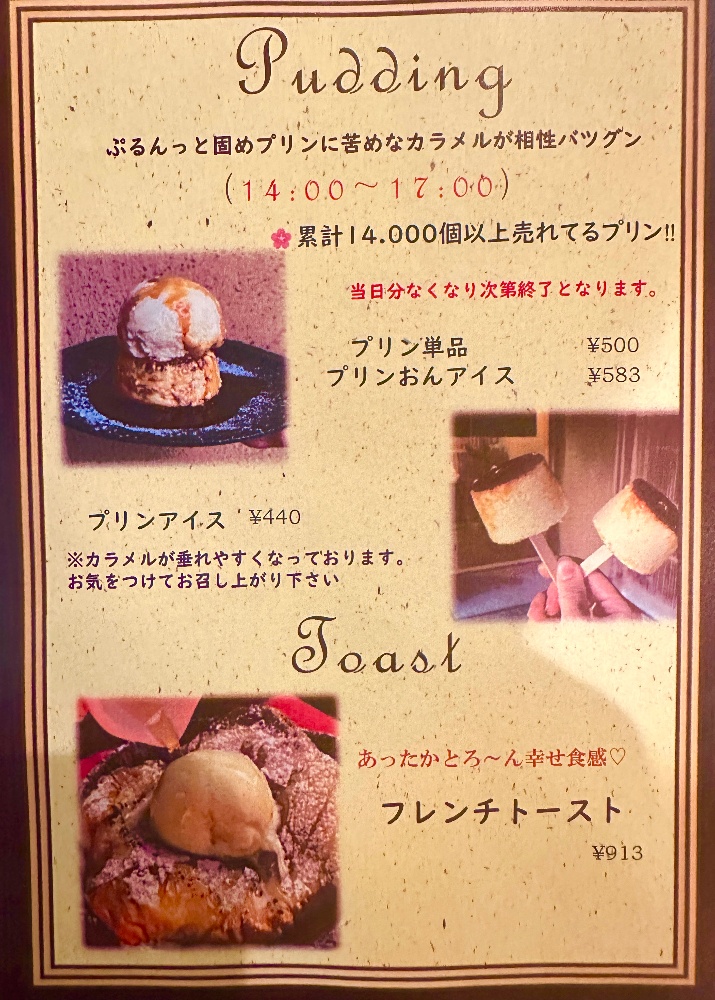 Pudding
ぷるんっと固めプリンに苦めなカラメルが相性バツグン
(14:00～17:00)
累計14.000個以上売れてるプリン!!
当日分なくなり次第終了となります。
プリン単品 ¥500
プリンおんアイス ¥583
プリンアイス ¥440
※カラメルが垂れやすくなっております。
お気をつけてお召し上がり下さい
Toast
あったかとろ～ん幸せ食感♡
フレンチトースト
¥913